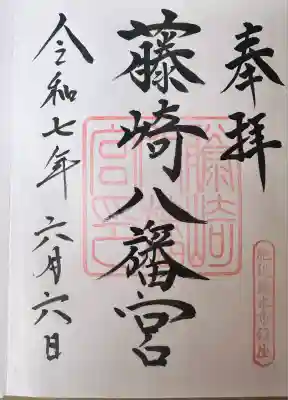 奉拝
藤崎八旛宮
令和七年六月六日